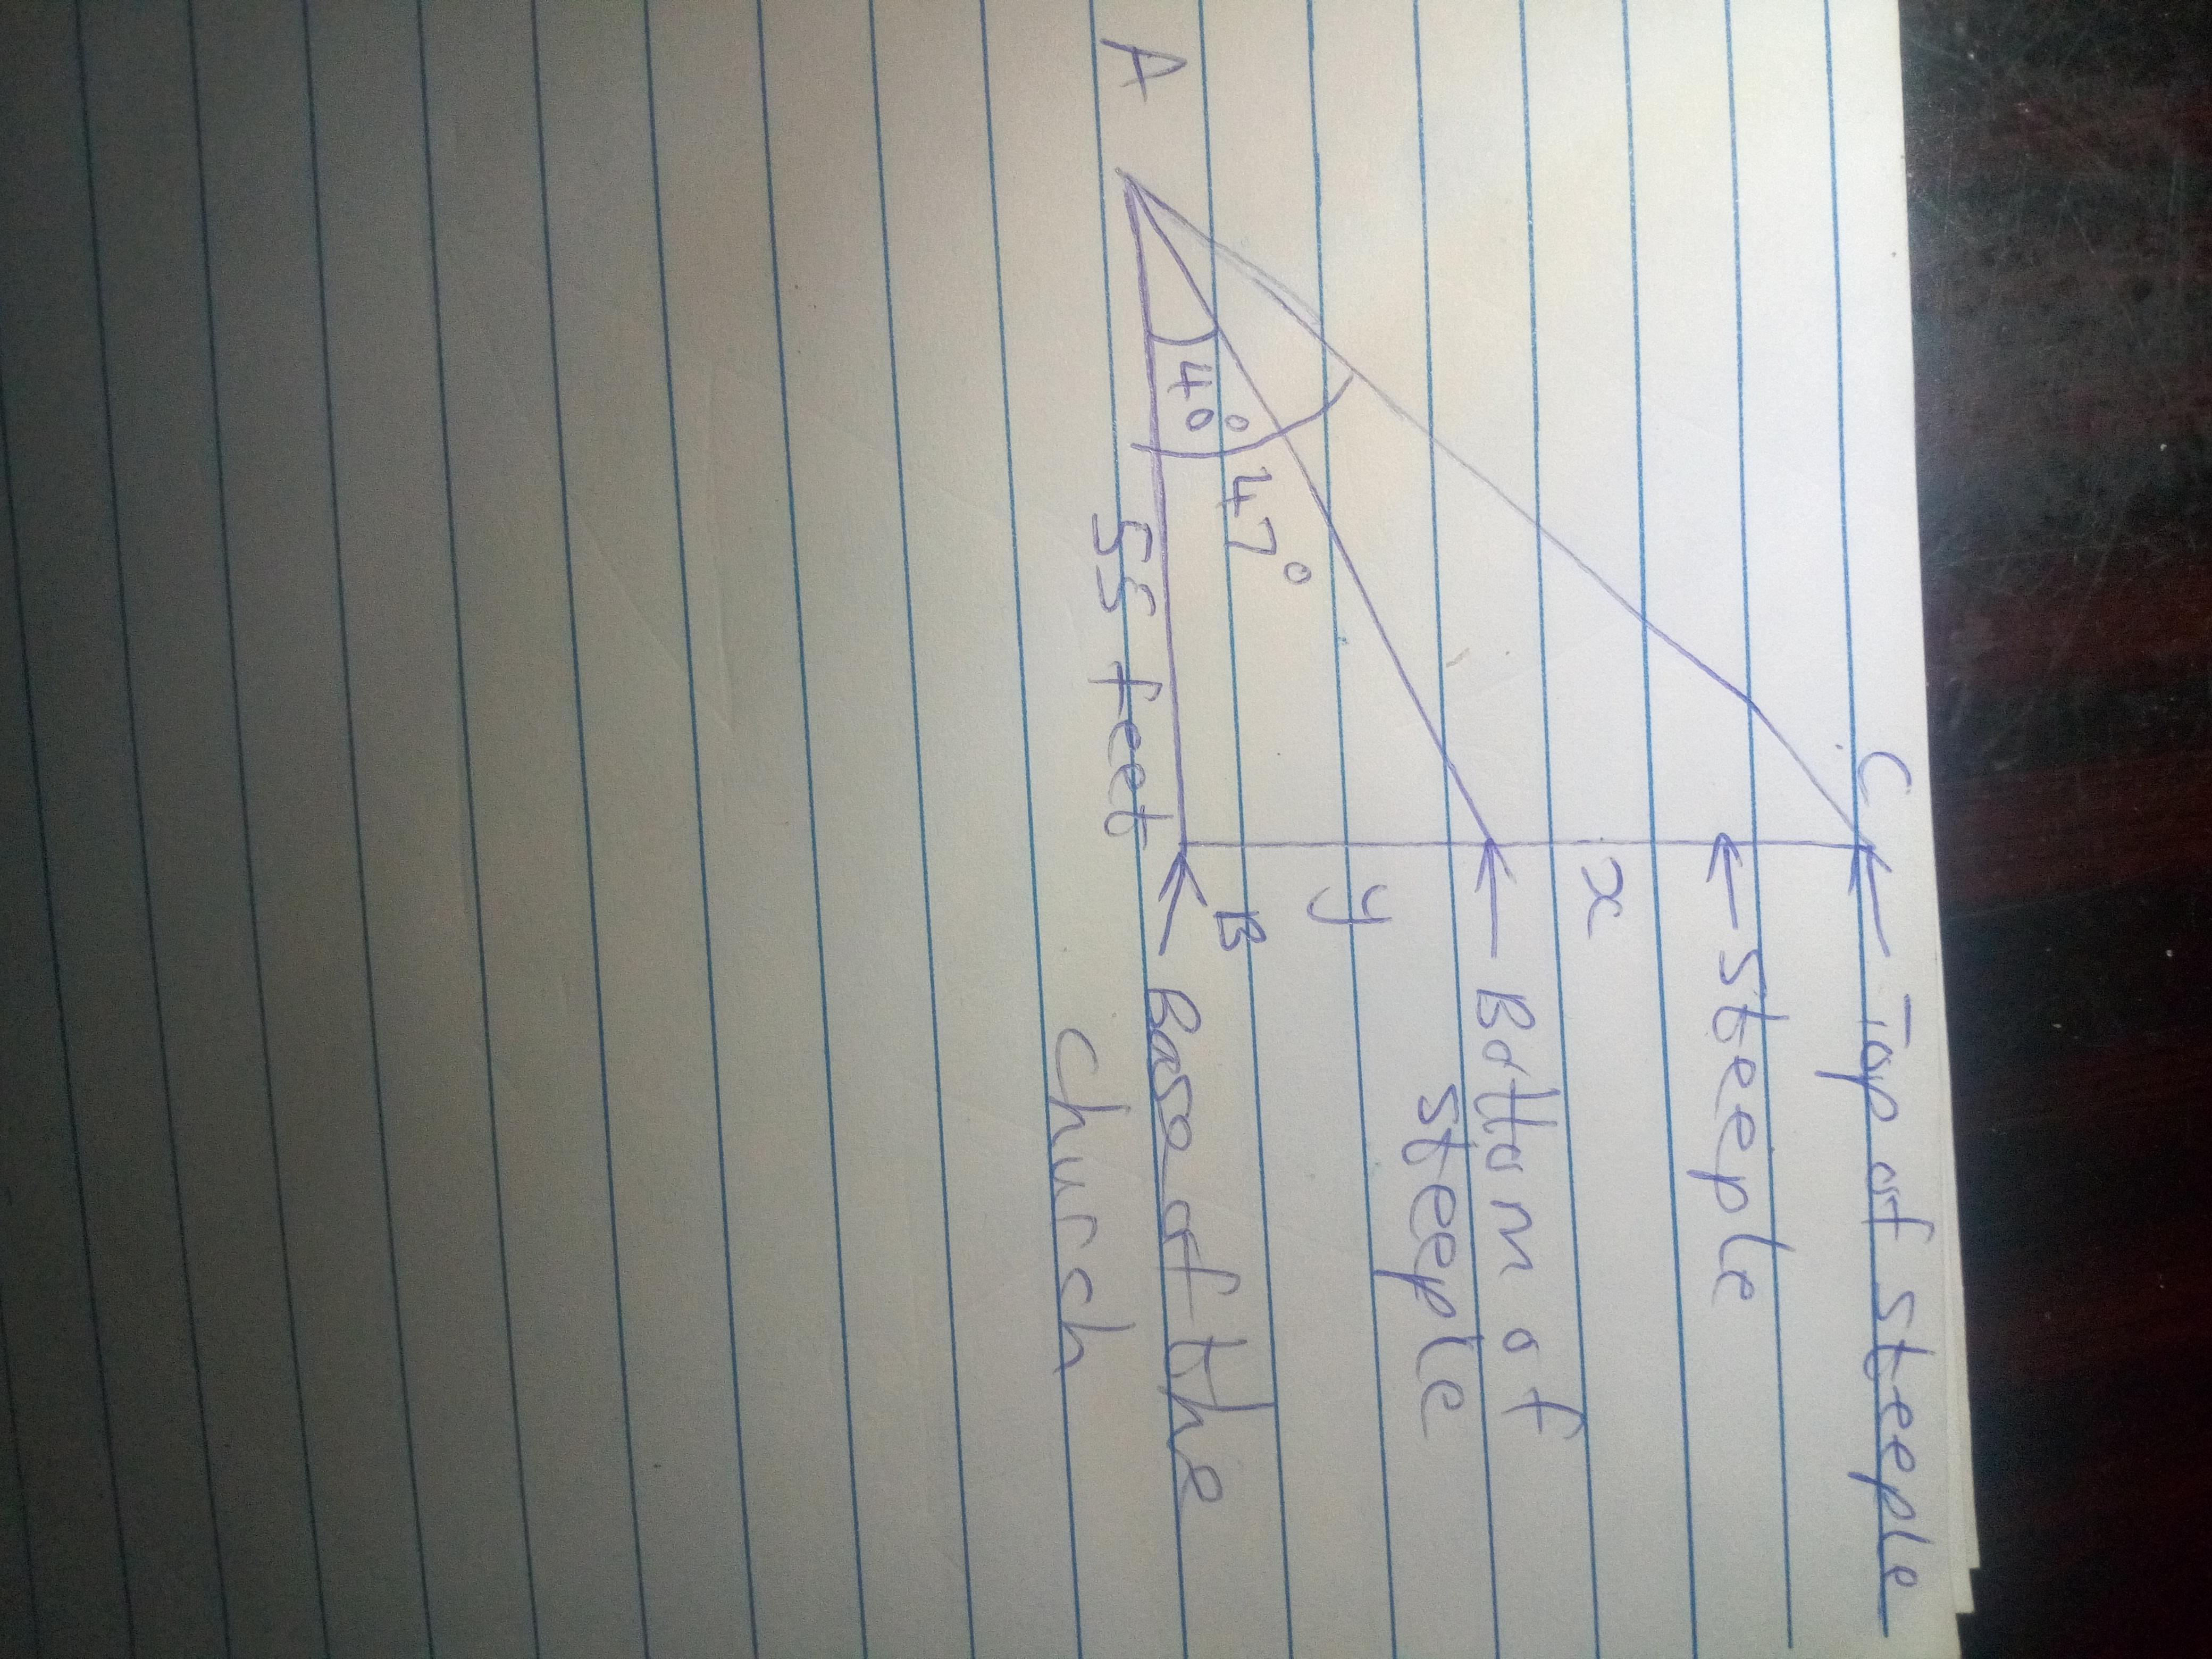 C
Top of steeple
steeple
x
Bottom of
steeple
y
47°
40°
A
B
55 feet
Base of the
church